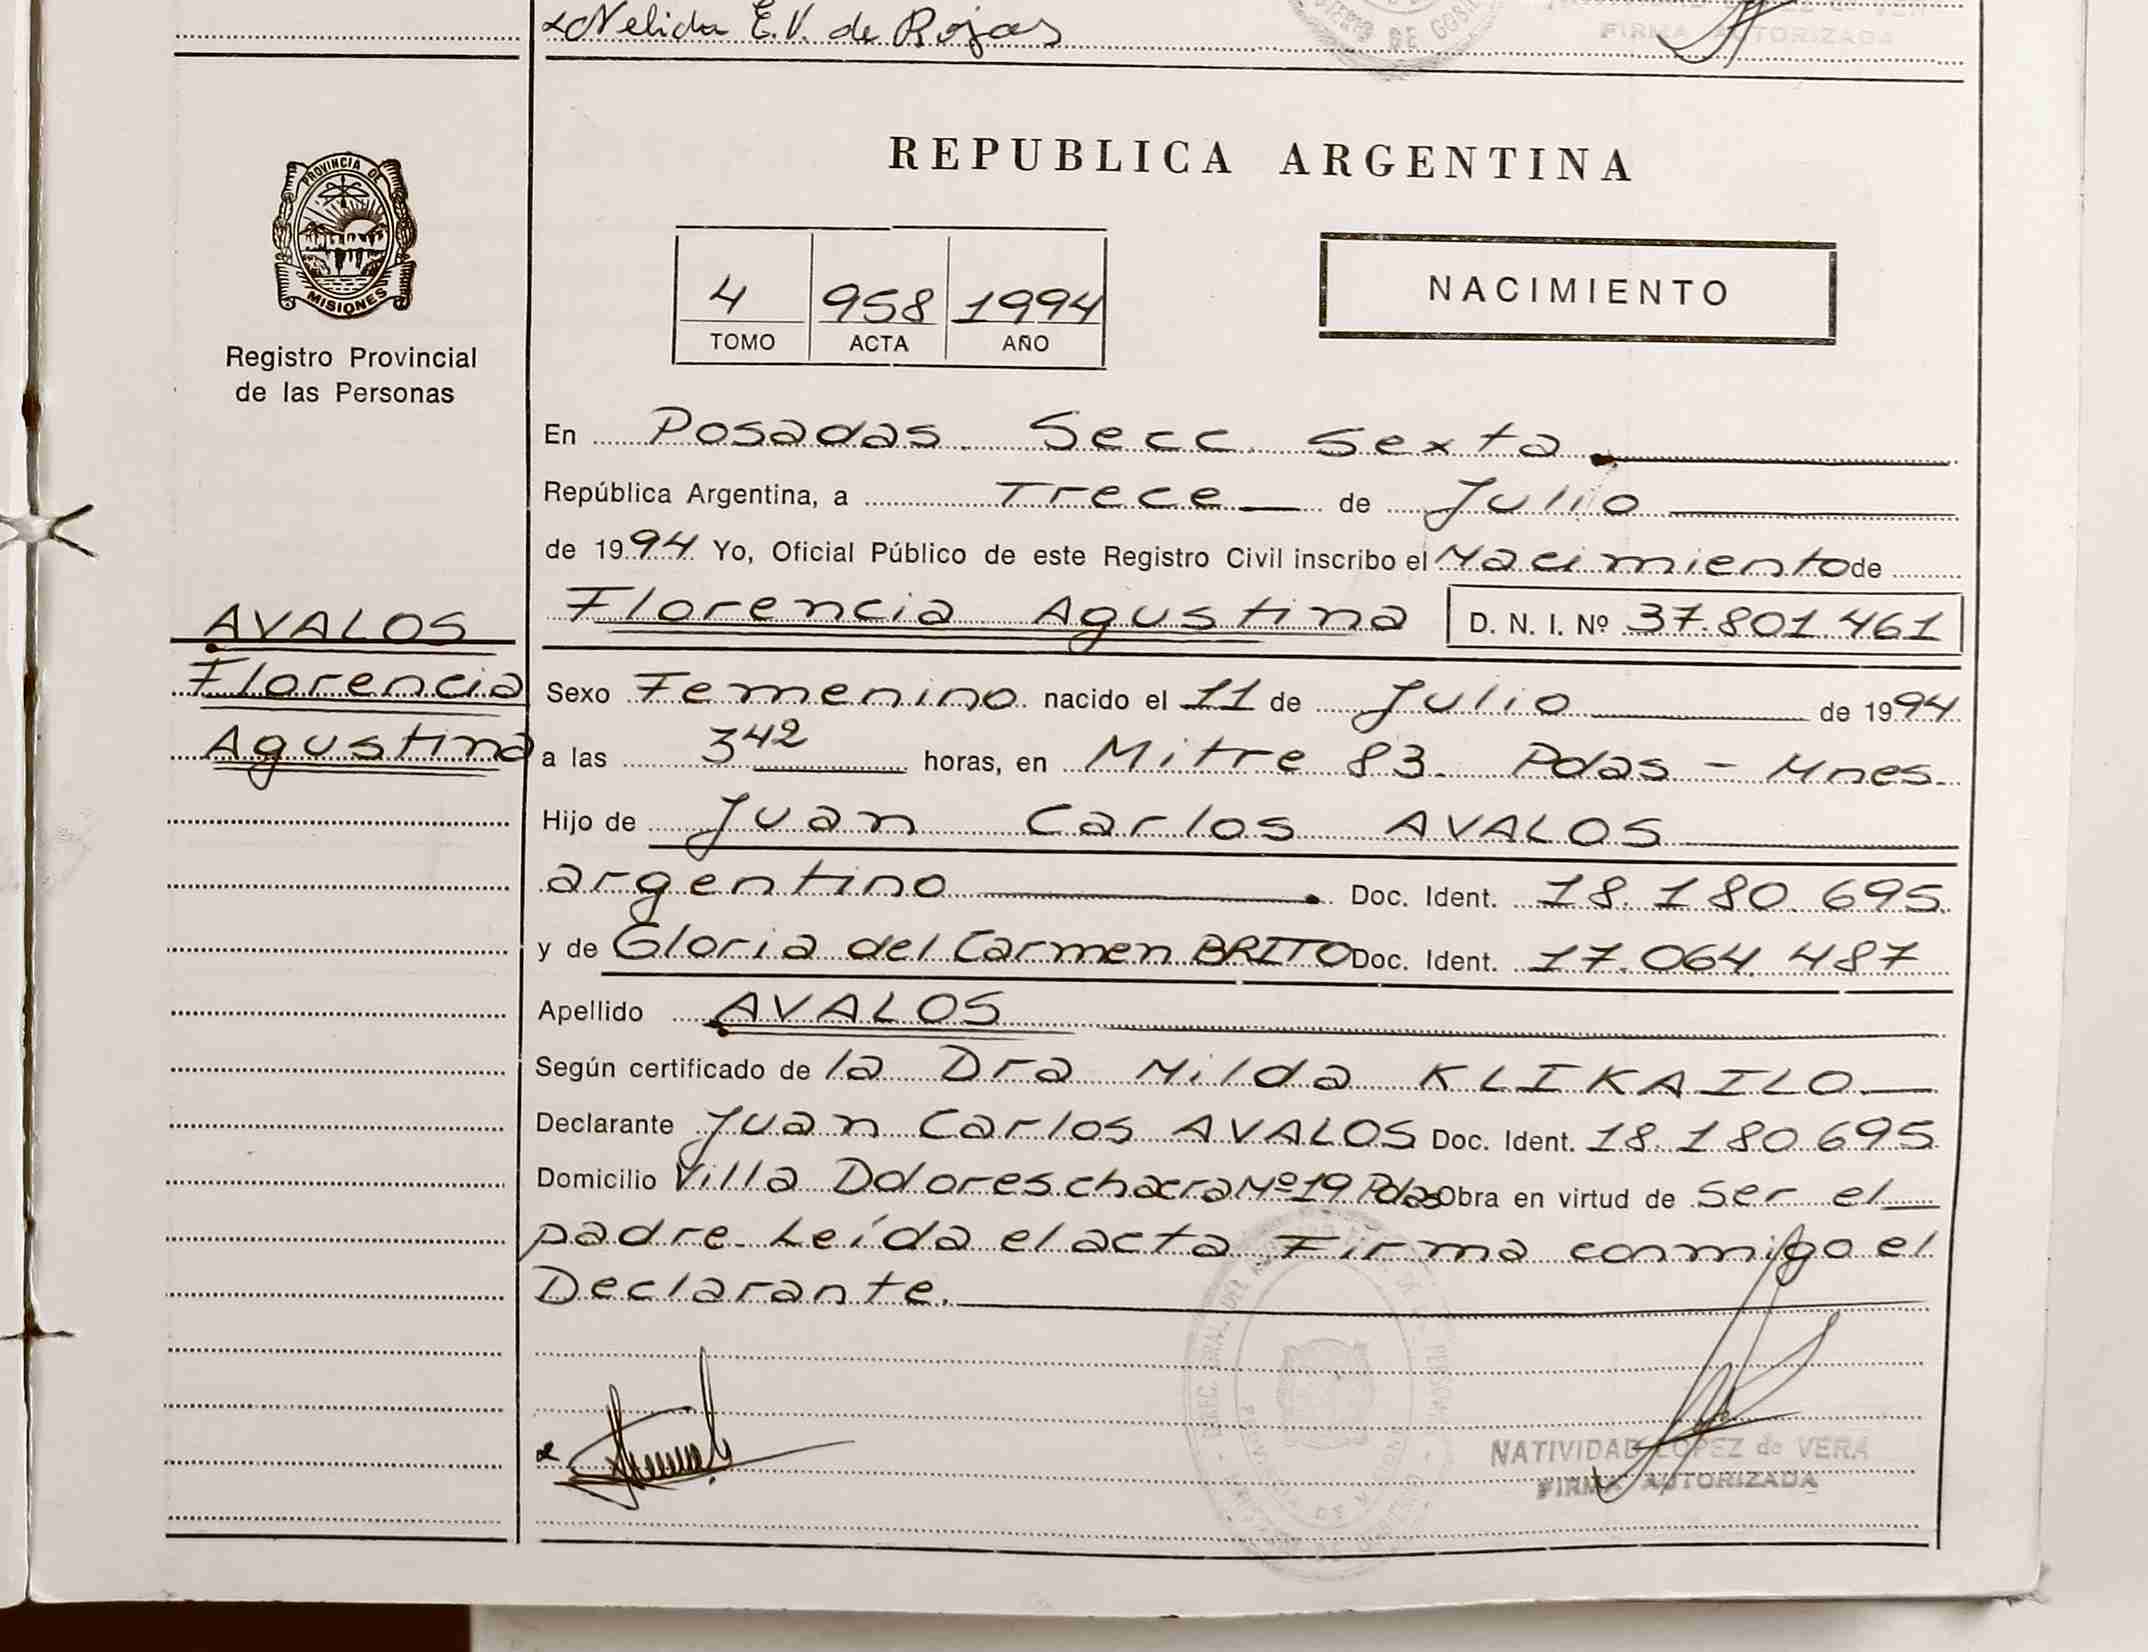 Nelida E.V. de Rojas
FIRMA AUTORIZADA
PROVINCIA DE
MISIONES
Registro Provincial
de las Personas
AVALOS
Florencia
Agustina
REPUBLICA ARGENTINA
4 958 1994
TOMO ACTA AÑO
NACIMIENTO
En Posadas Secc Sexta
República Argentina, a Trece de Julio
de 1994 Yo, Oficial Público de este Registro Civil inscribo el Nacimiento de
Florencia Agustina D. N. I. Nº 37.801.461
Sexo Femenino nacido el 11 de Julio de 1994
a las 3 42 horas, en Mitre 83. Pdas - Mnes.
Hijo de Juan Carlos AVALOS
argentino Doc. Ident. 18.180.695
y de Gloria del Carmen BRITO Doc. Ident. 17.064.487
Apellido AVALOS
Según certificado de la Dra Nilda KLIKAILO
Declarante Juan Carlos AVALOS Doc. Ident. 18.180.695
Domicilio Villa Dolores chacra Nº 19 Pdas Obra en virtud de ser el
padre. Leída el acta Firma conmigo el
Declarante.
NATIVIDAD LOPEZ de VERA
FIRMA AUTORIZADA